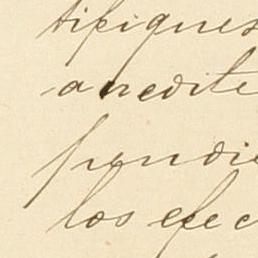 tifiques
anedite
pondie
los efec